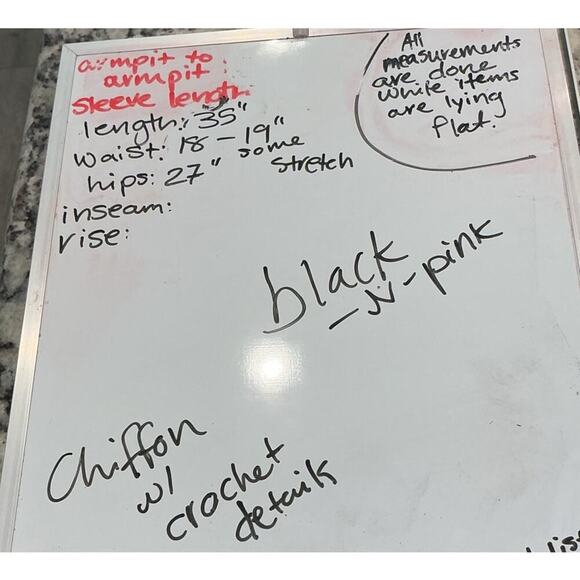 armpit to
armpit
sleeve length:
length: 35"
waist: 18-19"
some
stretch
hips: 27"
inseam:
rise:
All
measurements
are done
while items
are lying
flat.
black
-N-pink
Chiffon
w/
crochet
details